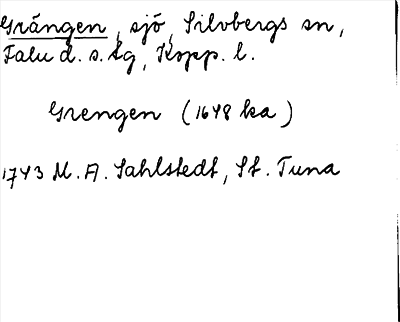 Grängen, sjö, Silvbergs sn,
Falu d. s. tg, Kopp. l.
Grengen (1648 ka)
1743 M. A. Sahlstedt, St. Tuna